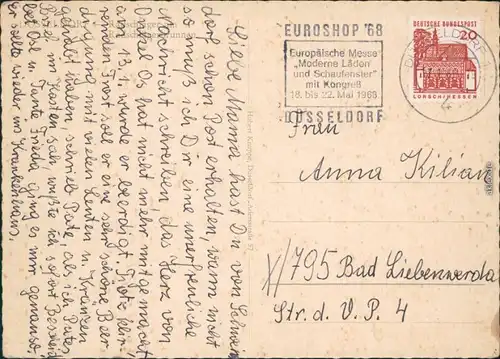 EUROSHOP '68
Europäische Messe
"Moderne Läden
und Schaufenster"
mit Kongreß
18. bis 22. Mai 1968
DÜSSELDORF
DEUTSCHE BUNDESPOST
20
LORSCH/HESSEN
Liebe Mama hast Du von Schwein
dorf schon Post erhalten, wenn nicht
so muß ich Dir eine unerfreuliche
Nachricht schreiben, das Herz von
Onkel Os hat nicht mehr mitgemacht,
am 13.1. wurde er beerdigt. Trotz klir-
renden Frost soll er eine sehr schöne Beer
digung mit vielen Leuten u. Kränzen
gehabt haben, schrieb Pate, als ich Putes
Brief im Kasten sah, wußte ich sofort Bescheid
Ost u. Tante Frieda ging es mir genauso,
wieder im Krankenhaus.
Frau
Anna Kilian
x/795 Bad Liebenwerda
Str. d. V. P. 4